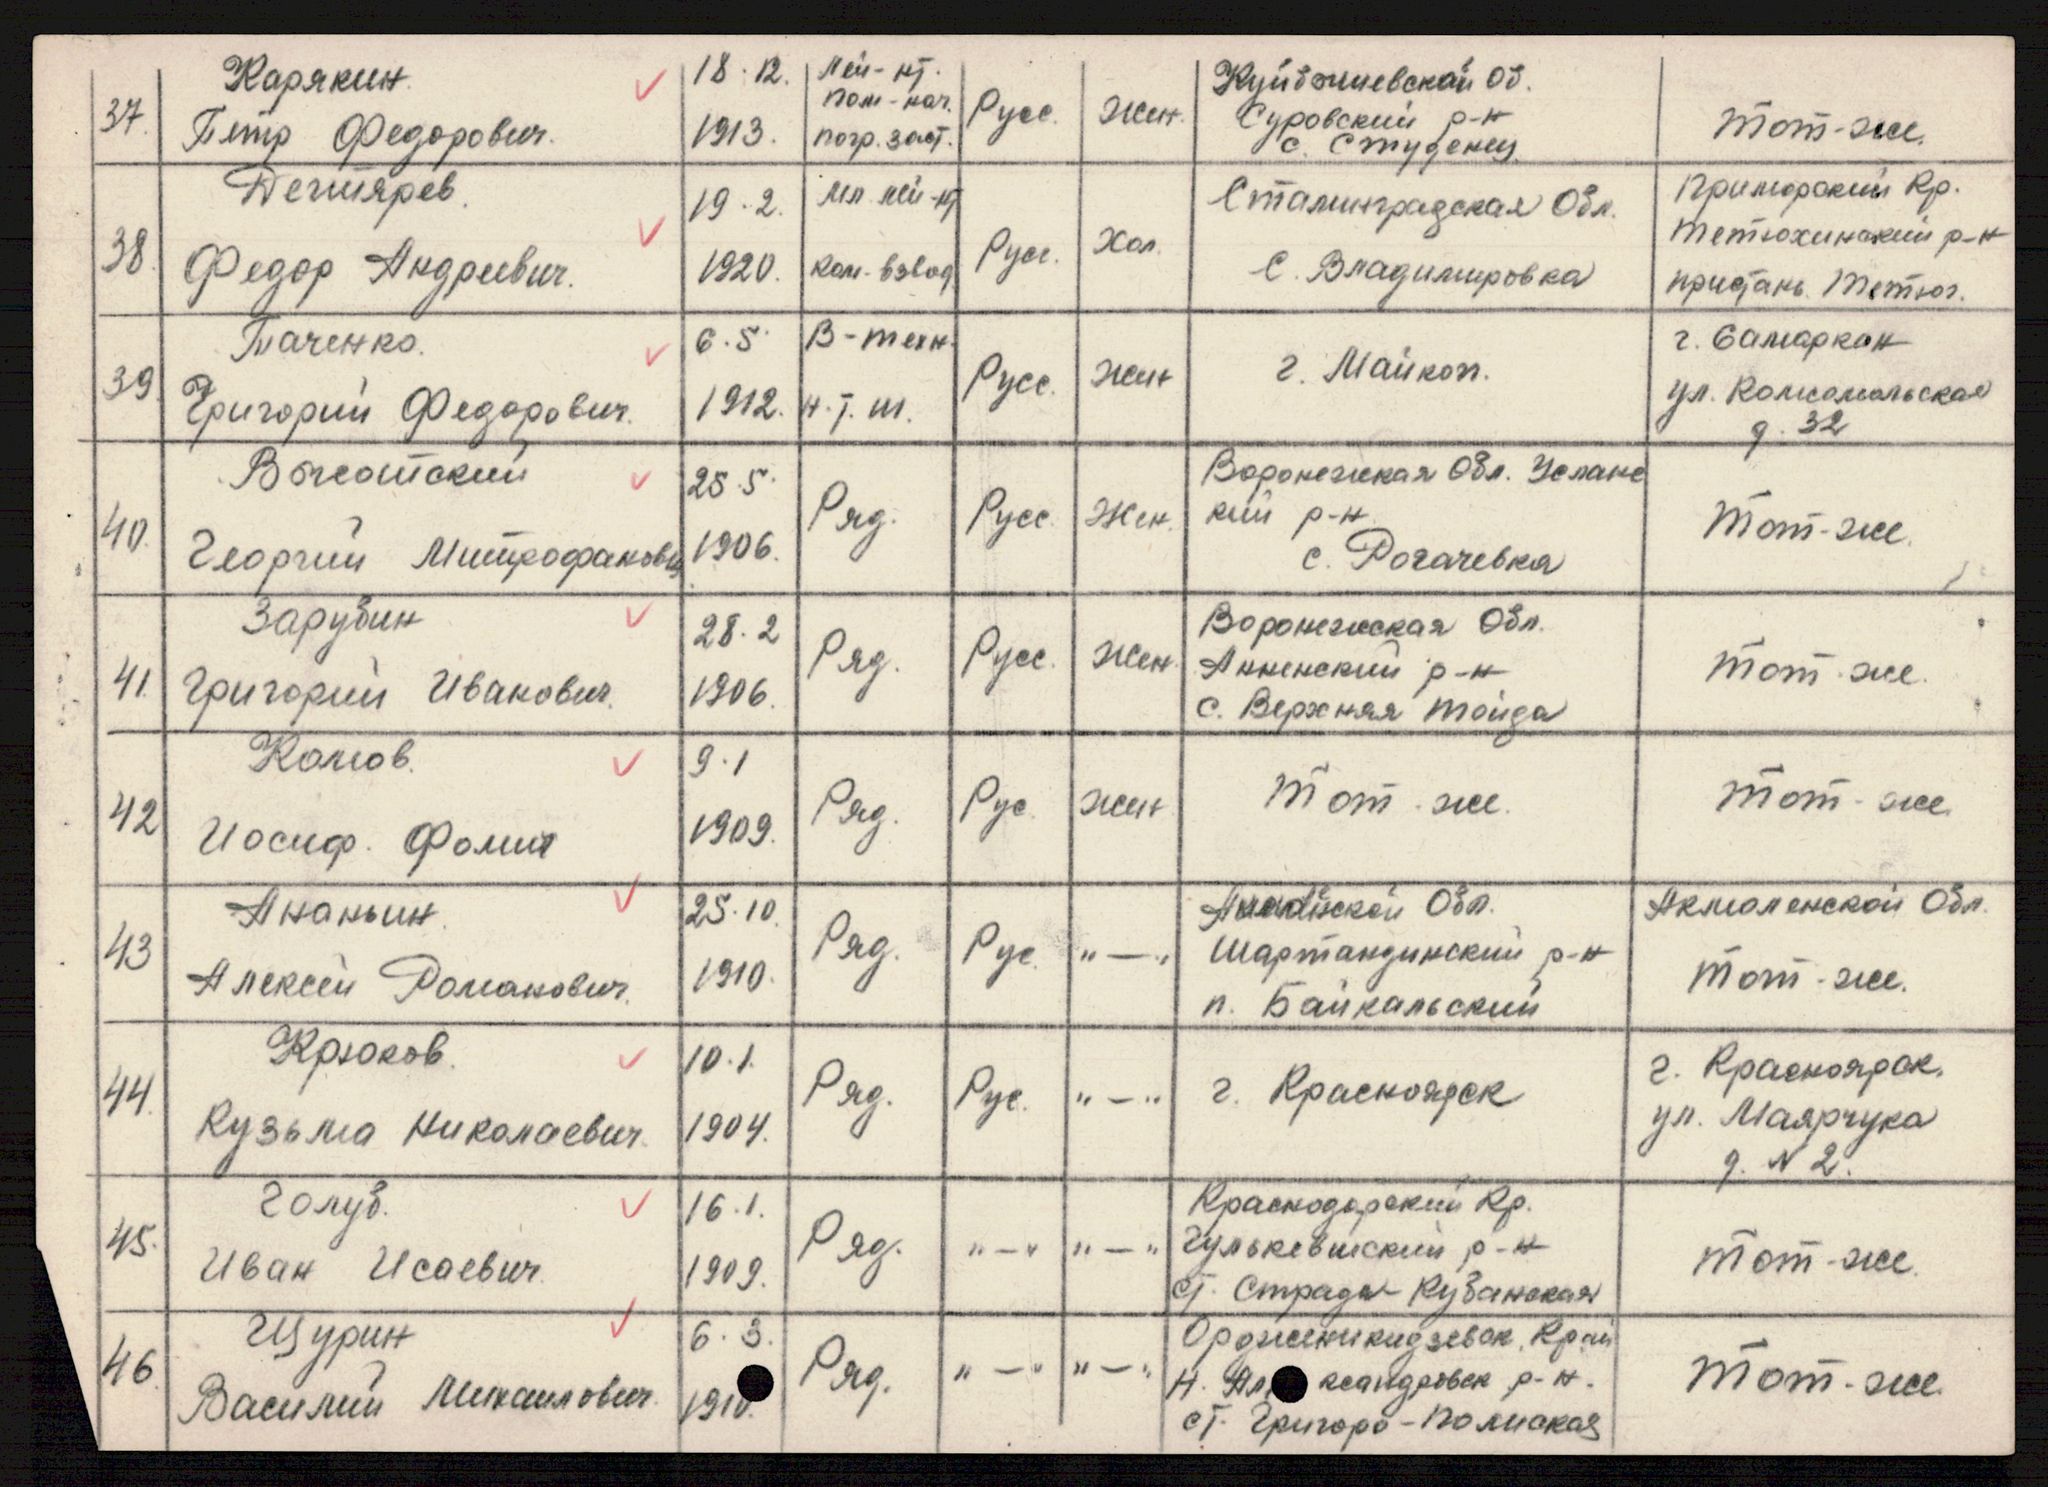 37. Карякин. Петр Федорович. 18.12. 1913. Лей-нт. пом-нач. погр. заст. Русс. Жен. Куйбышевской Об. Суровский р-н с. Студенец Тот-же.
38. Дегтярев. Федор Андреевич. 19.2. 1920. Мл. лей-нт ком-взвод Русс. Хол. Сталинградская Обл. С. Владимировка Приморский Кр. Тетюхинский р-н пристань Тетюх.
39. Ткаченко. Григорий Федорович. 6.5. 1912. В-техн. н.т.ш. Русс. Жен г. Майкоп. г. Самаркан ул. Комсомольская д. 32
40. Георгий Митрофанович 25.5. 1906. Ряд. Русс. Жен. Воронежская Обл. Усманс кий р-н с. Рогачевка Тот-же.
41. Зарубин Григорий Иванович. 28.2 1906. Ряд. Русс. Жен. Воронежская Обл. Анненский р-н с. Верхняя Тойда Тот-же.
42 Комов. Иосиф. Фомич 9.1 1909. Ряд. Рус. Жен Тот-же. Тот-же.
43 Ананьин. Алексей Романович. 25.10. 1910. Ряд. Рус. "—" Обл. Шартандинский р-н п. Байкальский Акмоленской Обл. Тот-же.
44. Крюков. Кузьма Николаевич. 10.1. 1904. Ряд. Рус. "—" г. Красноярск г. Красноярск. ул. Маярчука д. N 2.
45. Голуб. Иван Исаевич. 16.1. 1909. Ряд. "—" "—" Краснодарский Кр. Гулькевичский р-н ст. Отрада-Кубанская Тот-же.
46. Щурин Василий Михаилович. 6.3. 1910. Ряд. "—" "—" Орджоникидзевск. Край Н. Александровск р-н. ст. Григоро-Полиская Тот-же.